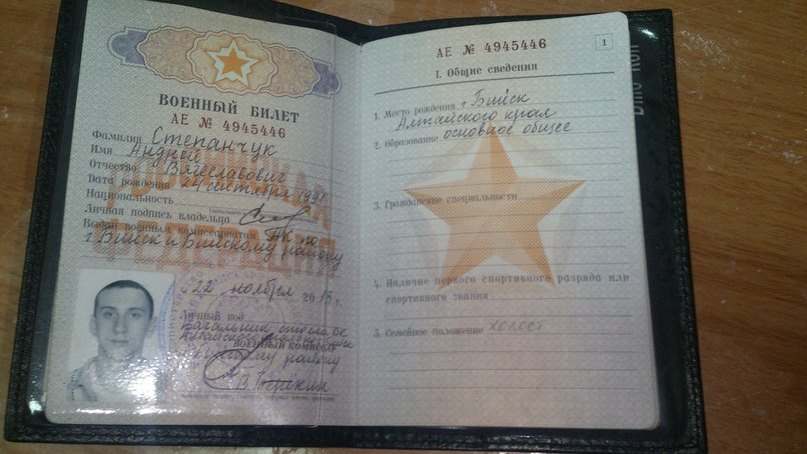 ВОЕННЫЙ БИЛЕТ
АЕ № 4945446
Фамилия Степанчук
Имя Андрей
Отчество Вячеславович
Дата рождения 24 октября 199
Национальность
Личная подпись владельца
Выдан военным комиссариатом по
г. Бийск и Бийскому району
22 ноября 2013 г.
Личный код
Начальник отдела ВК
Алтайского
военный комиссар
району
В.
АЕ № 4945446
1
I. Общие сведения
1. Место рождения г. Бийск
Алтайского края
2. Образование основное общее
3. Гражданские специальности
4. Наличие первого спортивного разряда или
спортивного звания
5. Семейное положение холост